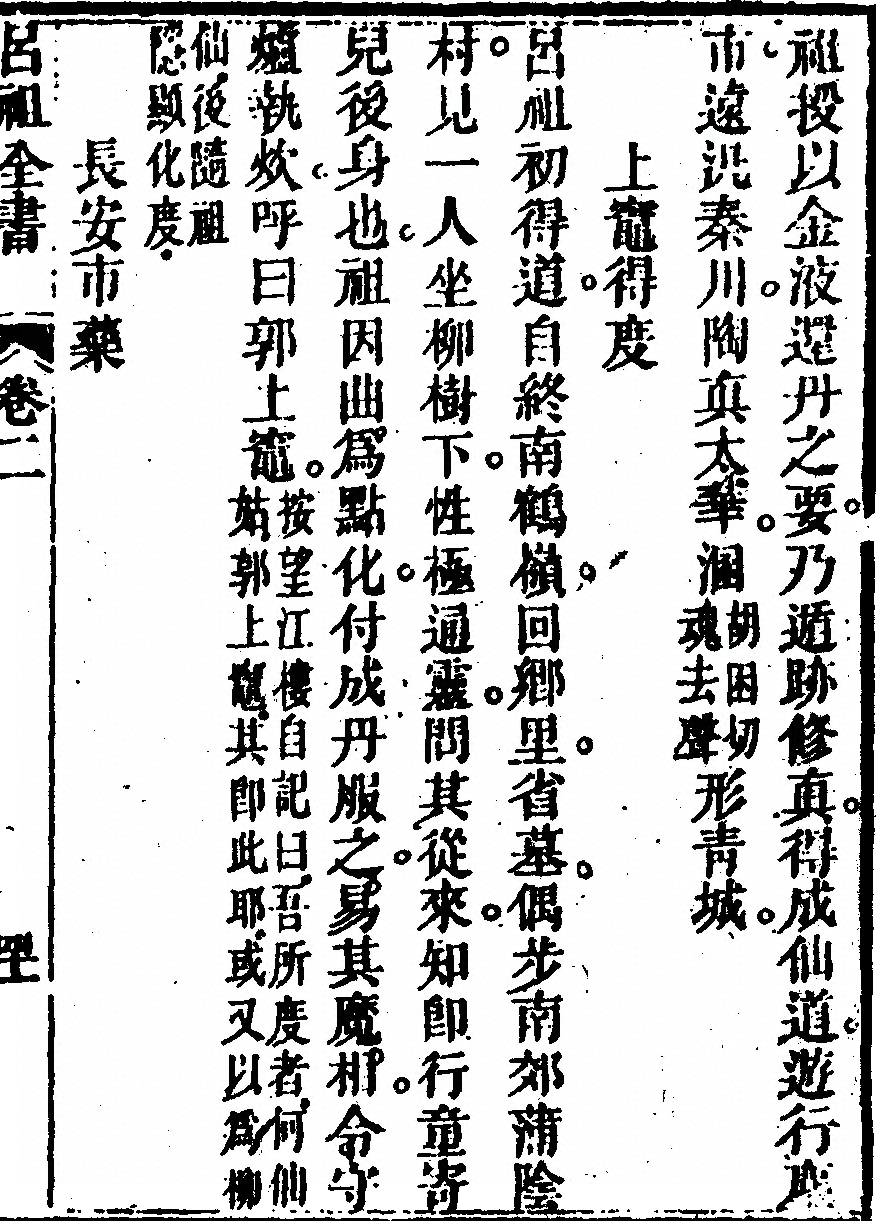 祖授以金液還丹之要乃遁跡修真得成仙道遊行
市遠汎秦川陶真太華溷胡困切魂去聲形青城
上竈得度
呂祖初得道自終南鶴嶺回鄉里省墓偶步南郊蒲陰
村見一人坐柳樹下性極通靈問其從來知即行童寄
兒後身也祖因曲為點化付成丹服之易其魔相令守
爐執炊呼曰郭上竈按望江樓自記曰吾所度者何仙
姑郭上竈其即此耶或又以為柳
仙後隨祖
隱顯化度
長安市藥
呂祖全書
卷二